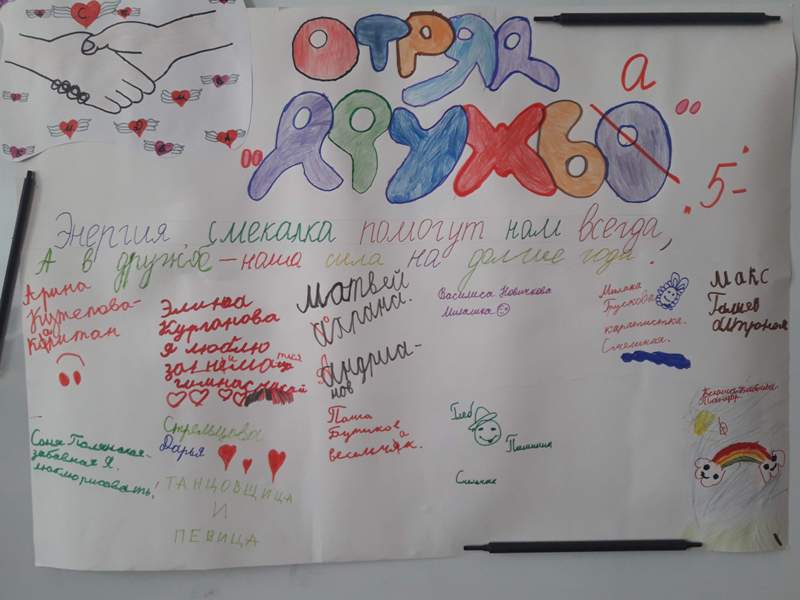 ОТРЯД
"ДРУЖБО"
а
5-
Энергия, смекалка помогут нам всегда,
А в дружбе - наша сила на долгие года!
Арина
Капитан
Элина
Курганова
Я люблю
гимнастикой
Матвей
Охрана.
Андриа-
нов
Василиса Новичкова
Милашка
Милана
Трускова
карапистка.
Смешная.
Макс
Галиев
Соня Полянская-
забавная Я.
люблю рисовать!
Стрельцова
Дарья
ТАНЦОВЩИЦА
И
ПЕВИЦА
Паша
Бутиков
весельчак.
Глеб